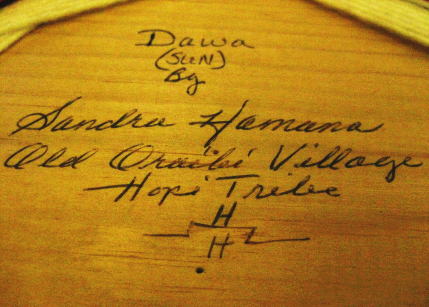 Dawa
(SUN)
By
Sandra Hamana
Old Oraibi Village
Hopi Tribe
H
H